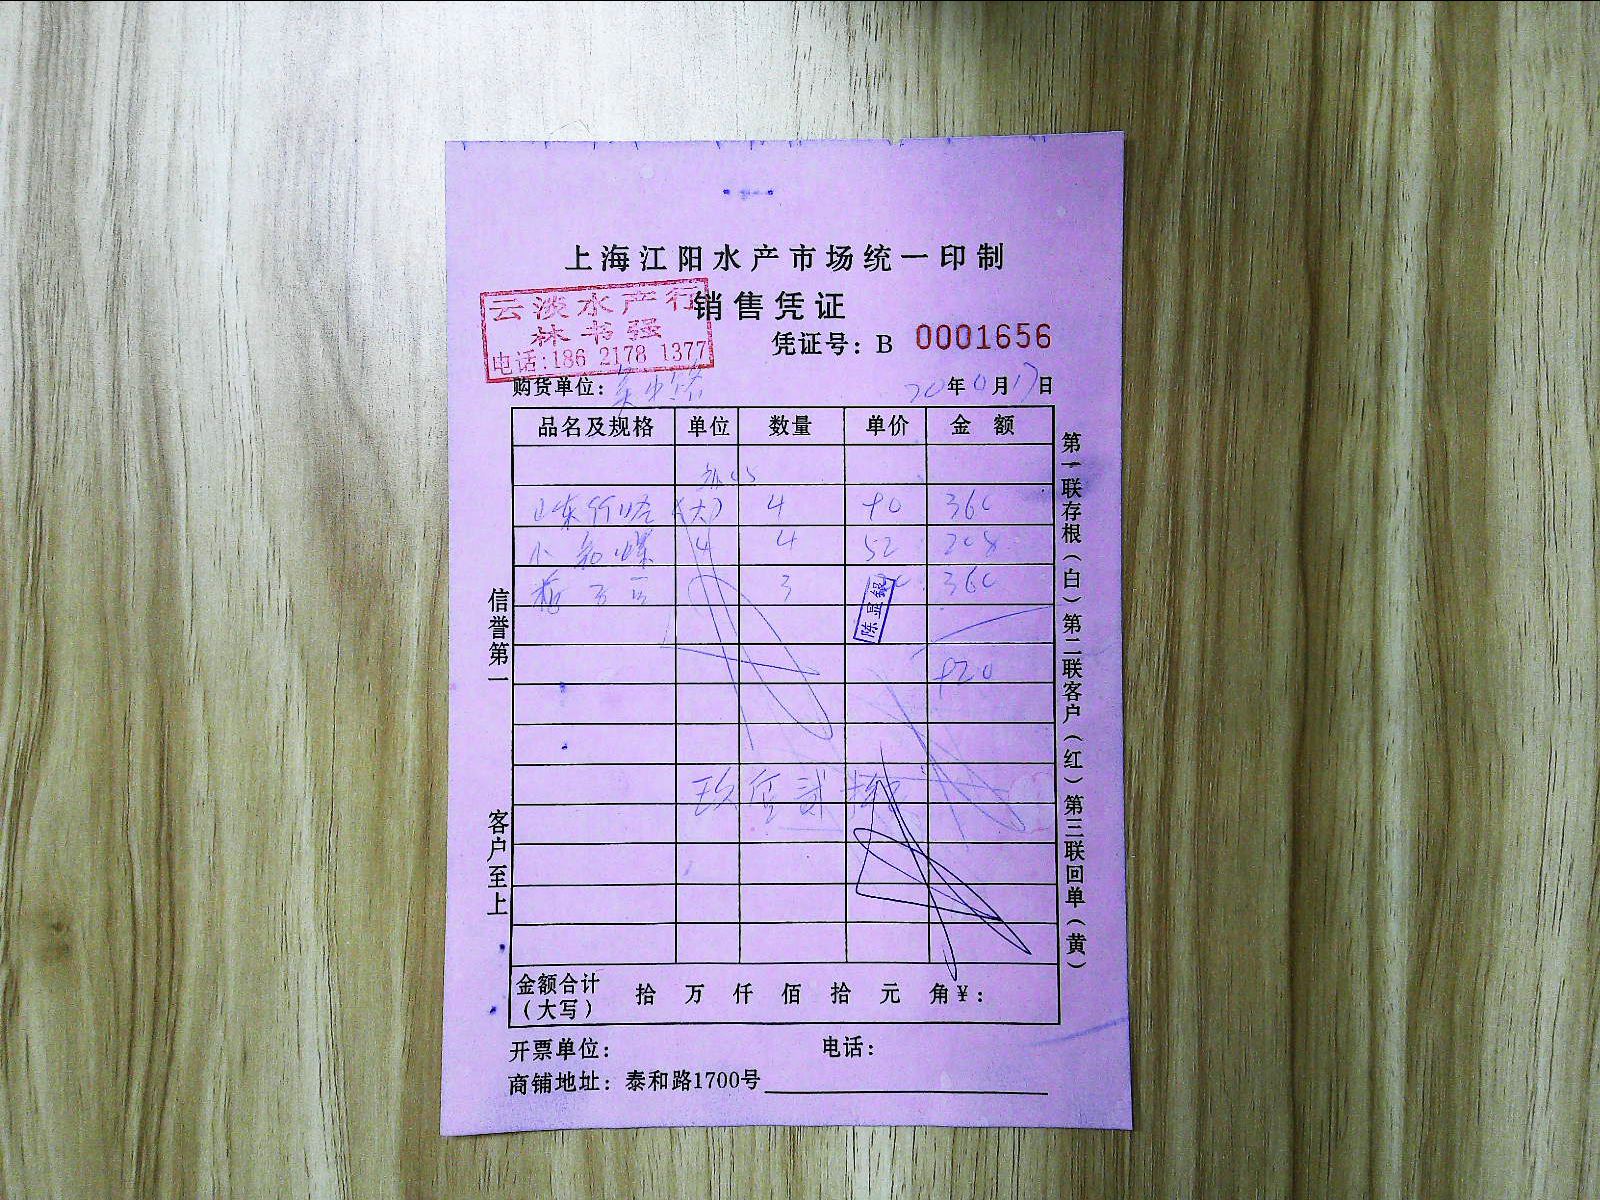 上海江阳水产市场统一印制
销售凭证
云淡水产行
林书强
电话:186 2178 1377
凭证号：B 0001656
购货单位：吴中路 20年 月17日
品名及规格 单位 数量 单价 金额
山东 (大) 4 90 360
小 螺 4 4 52 208
3 360
陈显银
920
玖佰贰拾
信誉第一
客户至上
第一联存根（白）第二联客户（红）第三联回单（黄）
金额合计（大写） 拾 万 仟 佰 拾 元 角¥：
开票单位： 电话：
商铺地址：泰和路1700号